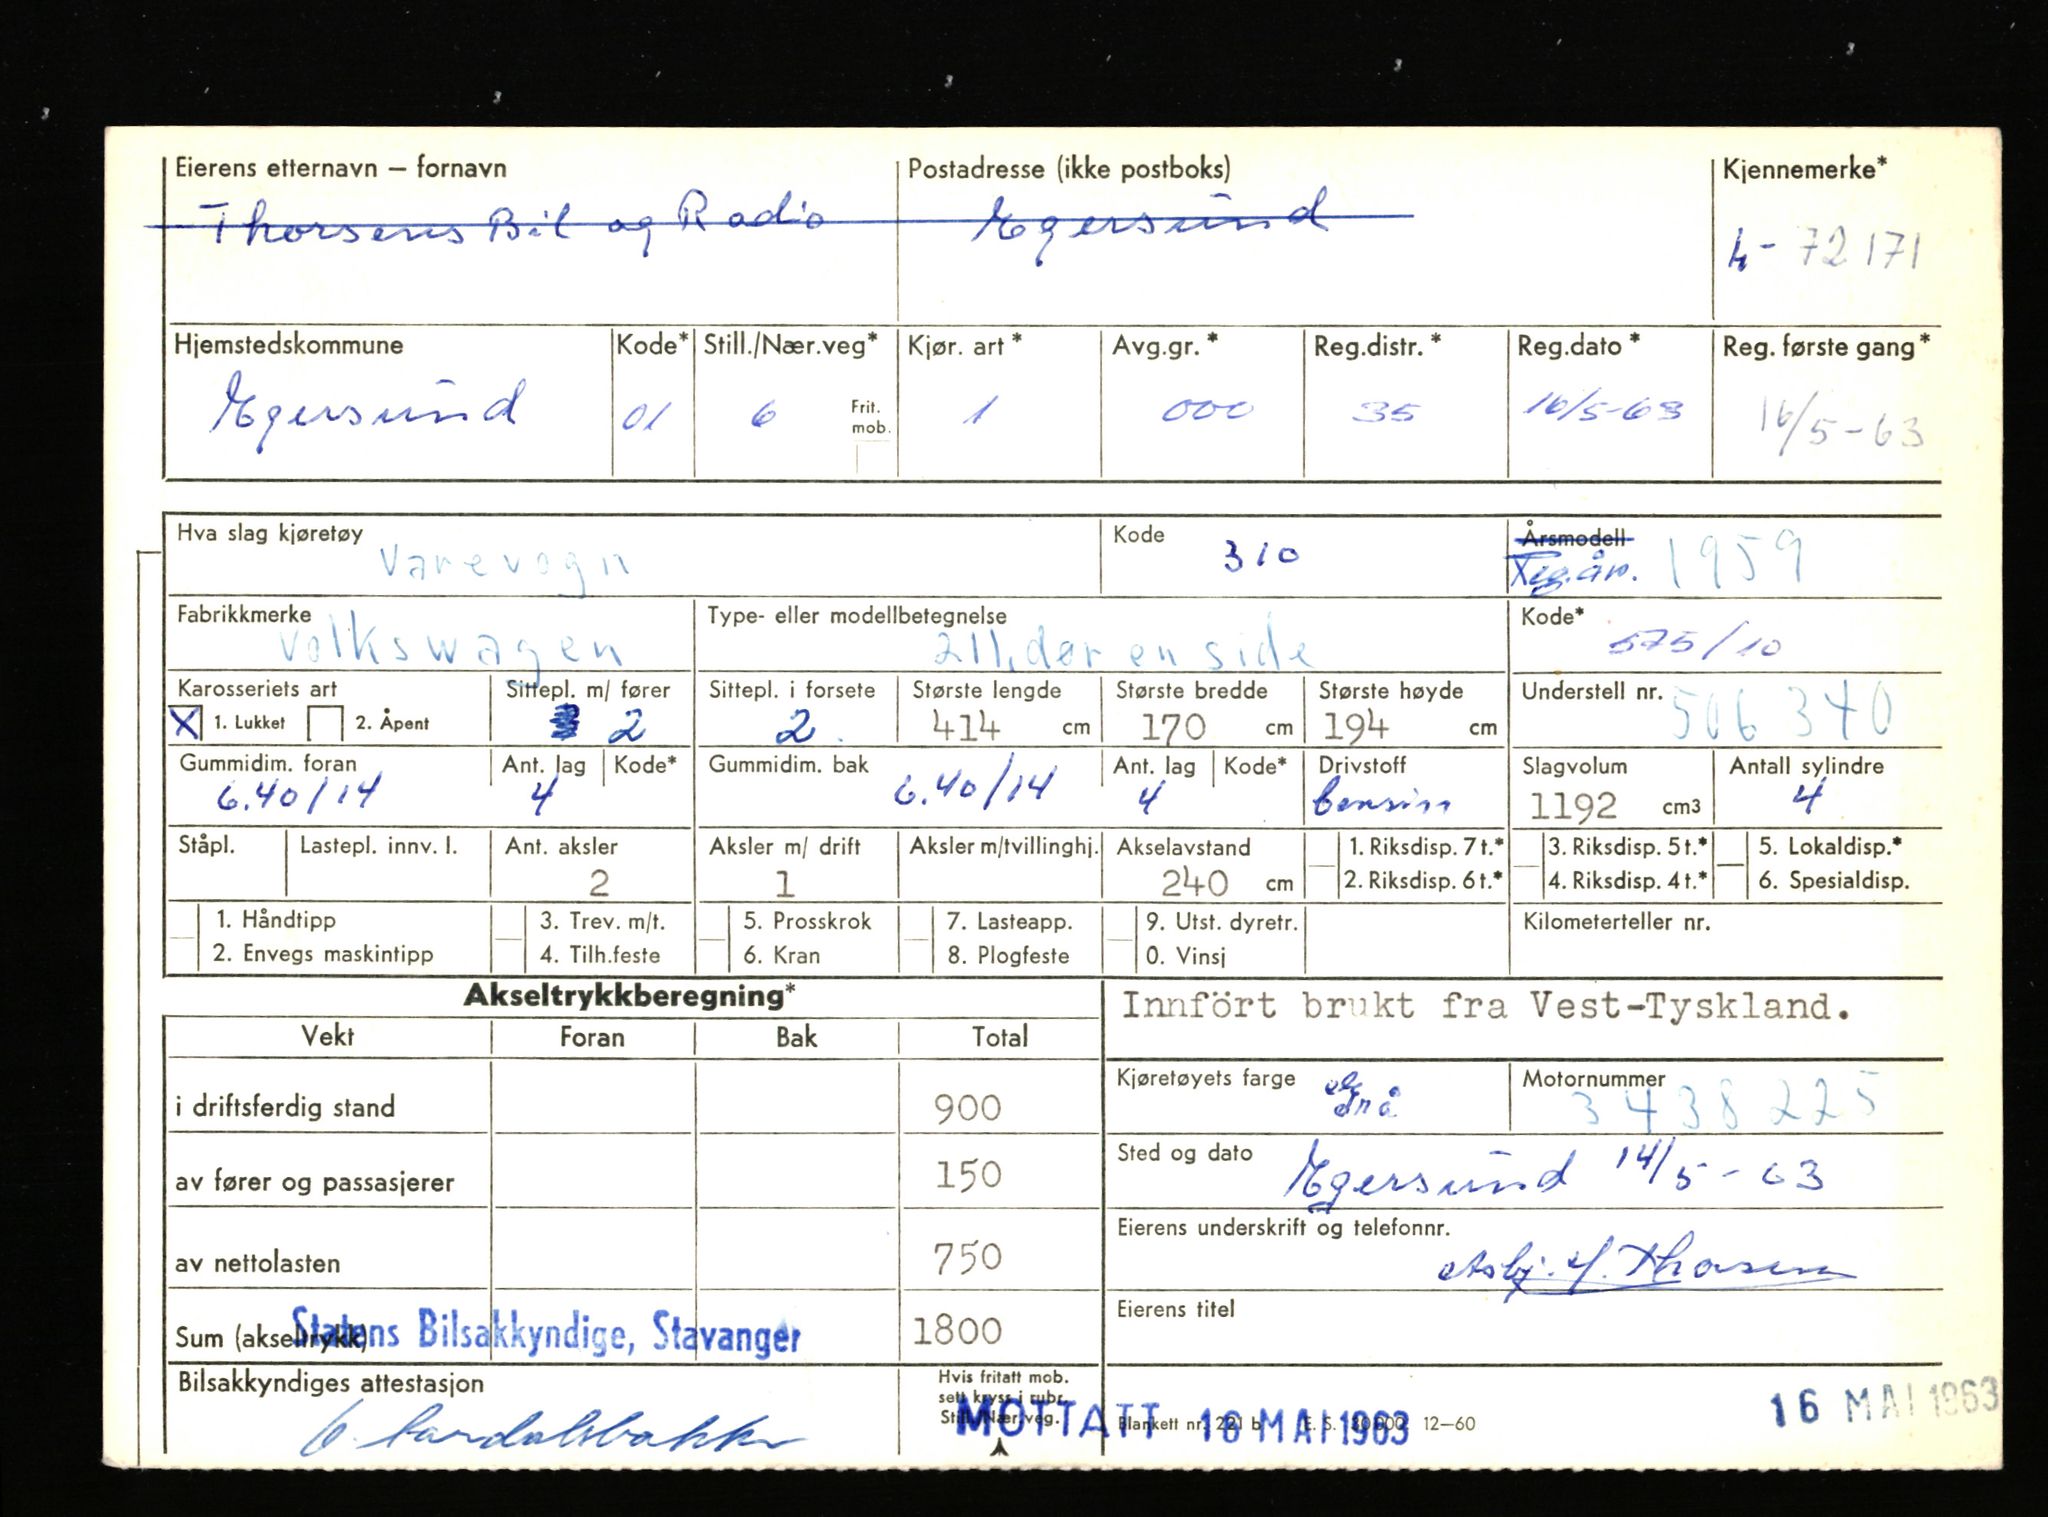 Eierens etternavn – fornavn Postadresse (ikke postboks) Kjennemerke*
Thorsens Bil og Radio Egersund
L- 72171
Hjemstedskommune Kode* Still./Nær.veg* Kjør. art* Avg.gr.* Reg.distr.* Reg.dato* Reg. første gang*
Egersund 01 6 Frit. mob. 1 000 35 16/5-63 16/5-63
Hva slag kjøretøy Kode Årsmodell
Varevogn 310 Reg.år. 1959
Fabrikkmerke Type- eller modellbetegnelse Kode*
Volkswagen 211, dør en side 575/10
Karosseriets art Sittepl. m/ fører Sittepl. i forsete Største lengde Største bredde Største høyde Understell nr.
X 1. Lukket 2. Åpent 2 2 414 cm 170 cm 194 cm 506340
Gummidim. foran Ant. lag Kode* Gummidim. bak Ant. lag Kode* Drivstoff Slagvolum Antall sylindre
6.40/14 4 6.40/14 4 bensin 1192 cm3 4
Ståpl. Lastepl. innv. l. Ant. aksler Aksler m/ drift Aksler m/tvillinghj. Akselavstand 1. Riksdisp. 7 t.* 3. Riksdisp. 5 t.* 5. Lokaldisp.*
2 1 240 cm 2. Riksdisp. 6 t.* 4. Riksdisp. 4 t.* 6. Spesialdisp.
1. Håndtipp 3. Trev. m/t. 5. Prosskrok 7. Lasteapp. 9. Utst. dyretr. Kilometerteller nr.
2. Envegs maskintipp 4. Tilh.feste 6. Kran 8. Plogfeste 0. Vinsj
Akseltrykkberegning* Innfört brukt fra Vest-Tyskland.
Vekt Foran Bak Total
Kjøretøyets farge grå Motornummer 3438225
i driftsferdig stand 900
Sted og dato Egersund 14/5-63
av fører og passasjerer 150
Eierens underskrift og telefonnr.
av nettolasten 750
Asbj. Thorsen
Eierens titel
Sum (akseltrykk) 1800
Statens Bilsakkyndige, Stavanger
Bilsakkyndiges attestasjon Hvis fritatt mob.
sett kryss i rubr.
Still./Nær.veg.
MOTTATT 16 MAI 1963
Blankett nr. 221 b E. S. 30000 12–60
16 MAI 1963